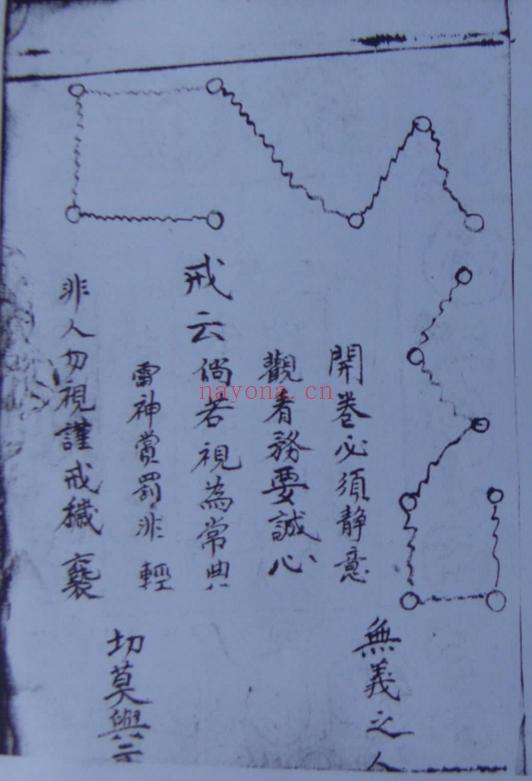 開卷必須静意
觀看務要誠心
戒云倘若視為常典
雷神賞罰非輕
非人勿視謹戒穢褻
無義之人
切莫與
nayona.cn